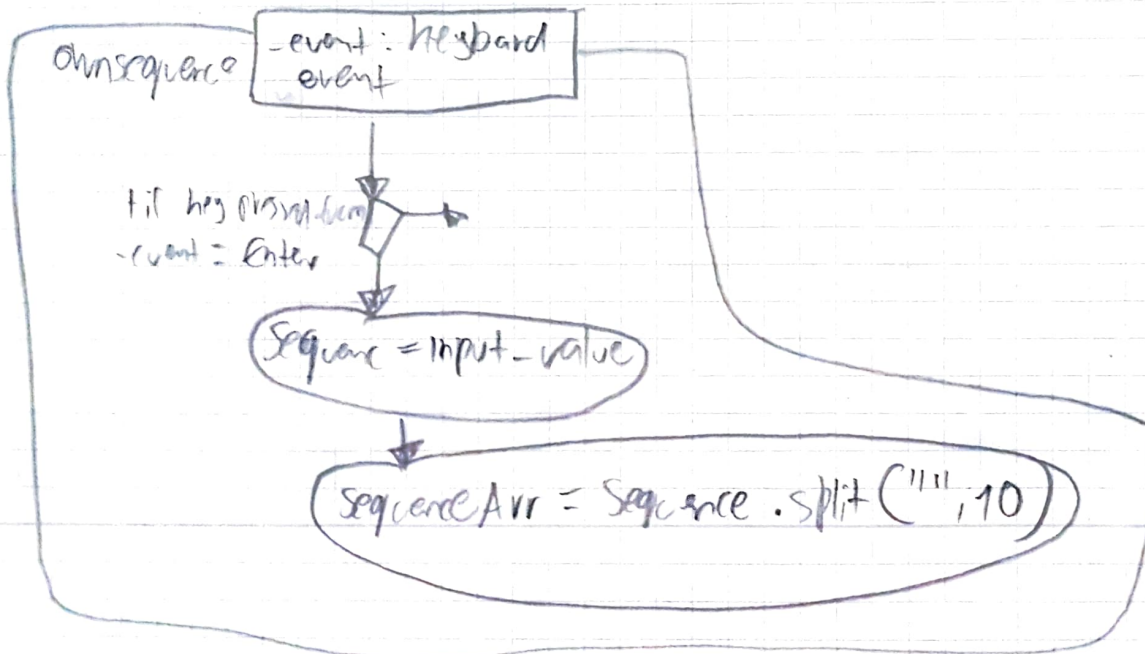 ownsequence
-event: keyboard
event
til key
-event = Enter
Sequenc = input_value
sequenceArr = Sequence.split("",10)